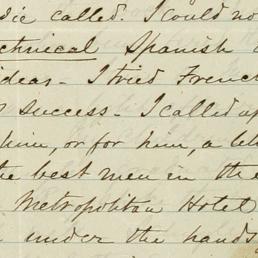 die called. I could no
technical Spanish
ideas - I tried French
success - I called up
him, or for him, a let
the best men in the
Metropolitan Hotel
under the hands